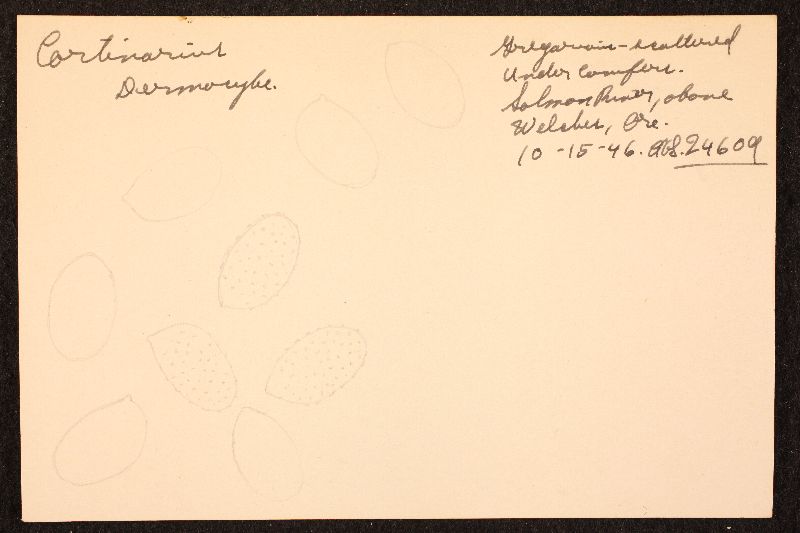 Cortinarius
Dermocybe.
Gregarious-scattered
Under conifers.
Salmon River, above
Welches, Ore.
10-15-46. AHS. 24609